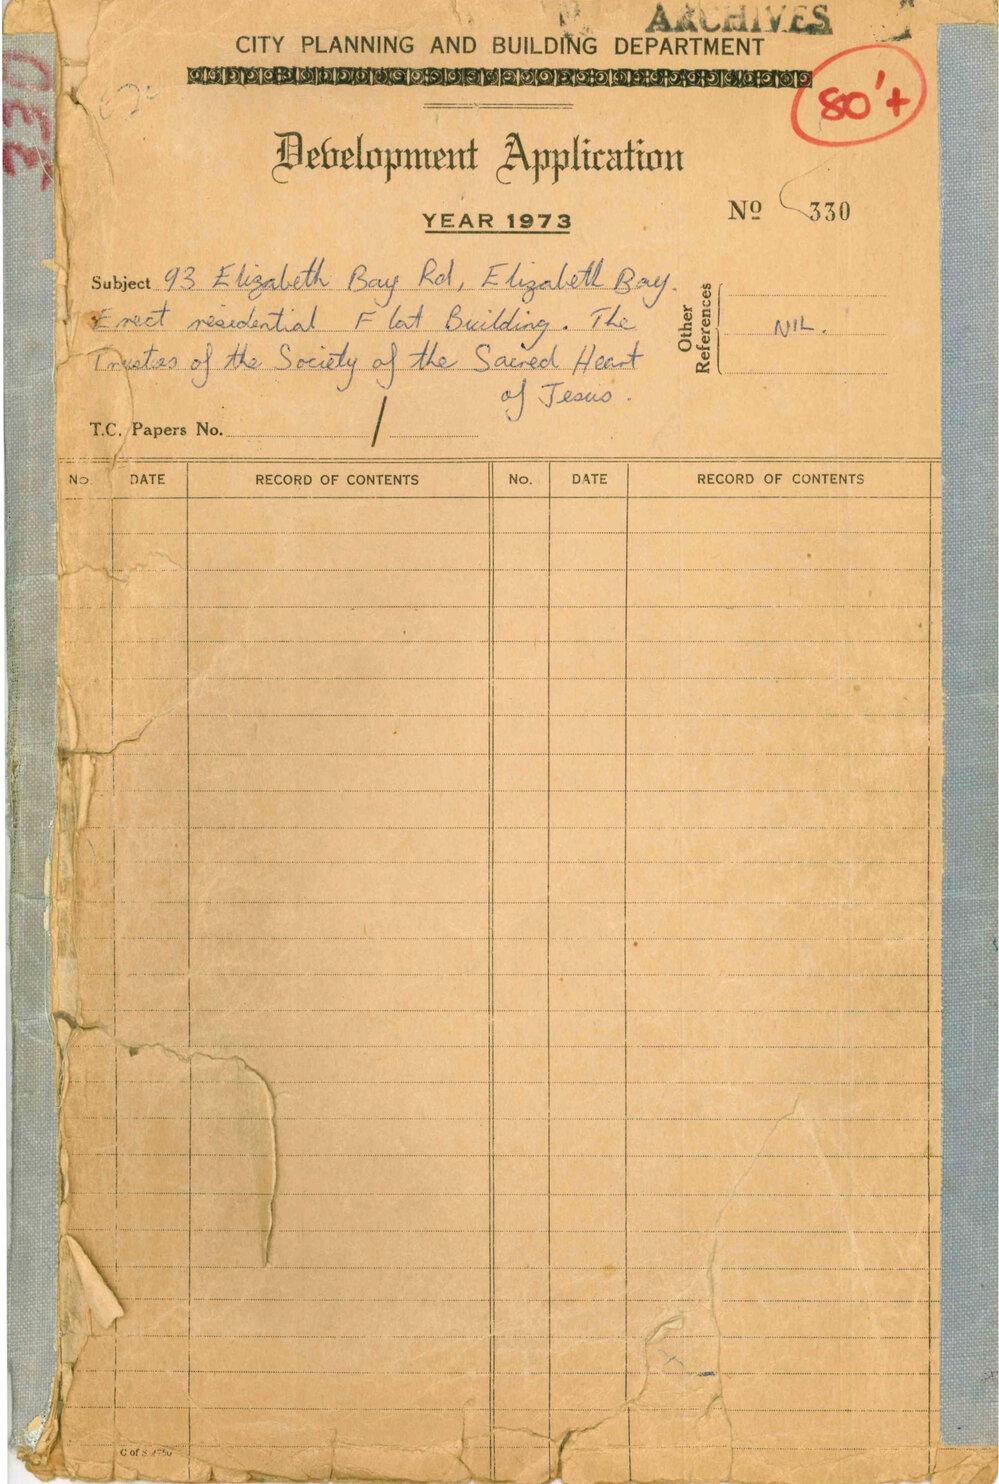 ARCHIVES
CITY PLANNING AND BUILDING DEPARTMENT
80'+
330
Development Application
YEAR 1973
Nº 330
Subject 93 Elizabeth Bay Rd, Elizabeth Bay.
Erect residential Flat Building. The
Trustes of the Society of the Sacred Heart
of Jesus.
Other References
NIL.
T.C. Papers No. /
No. DATE RECORD OF CONTENTS No. DATE RECORD OF CONTENTS
C of S